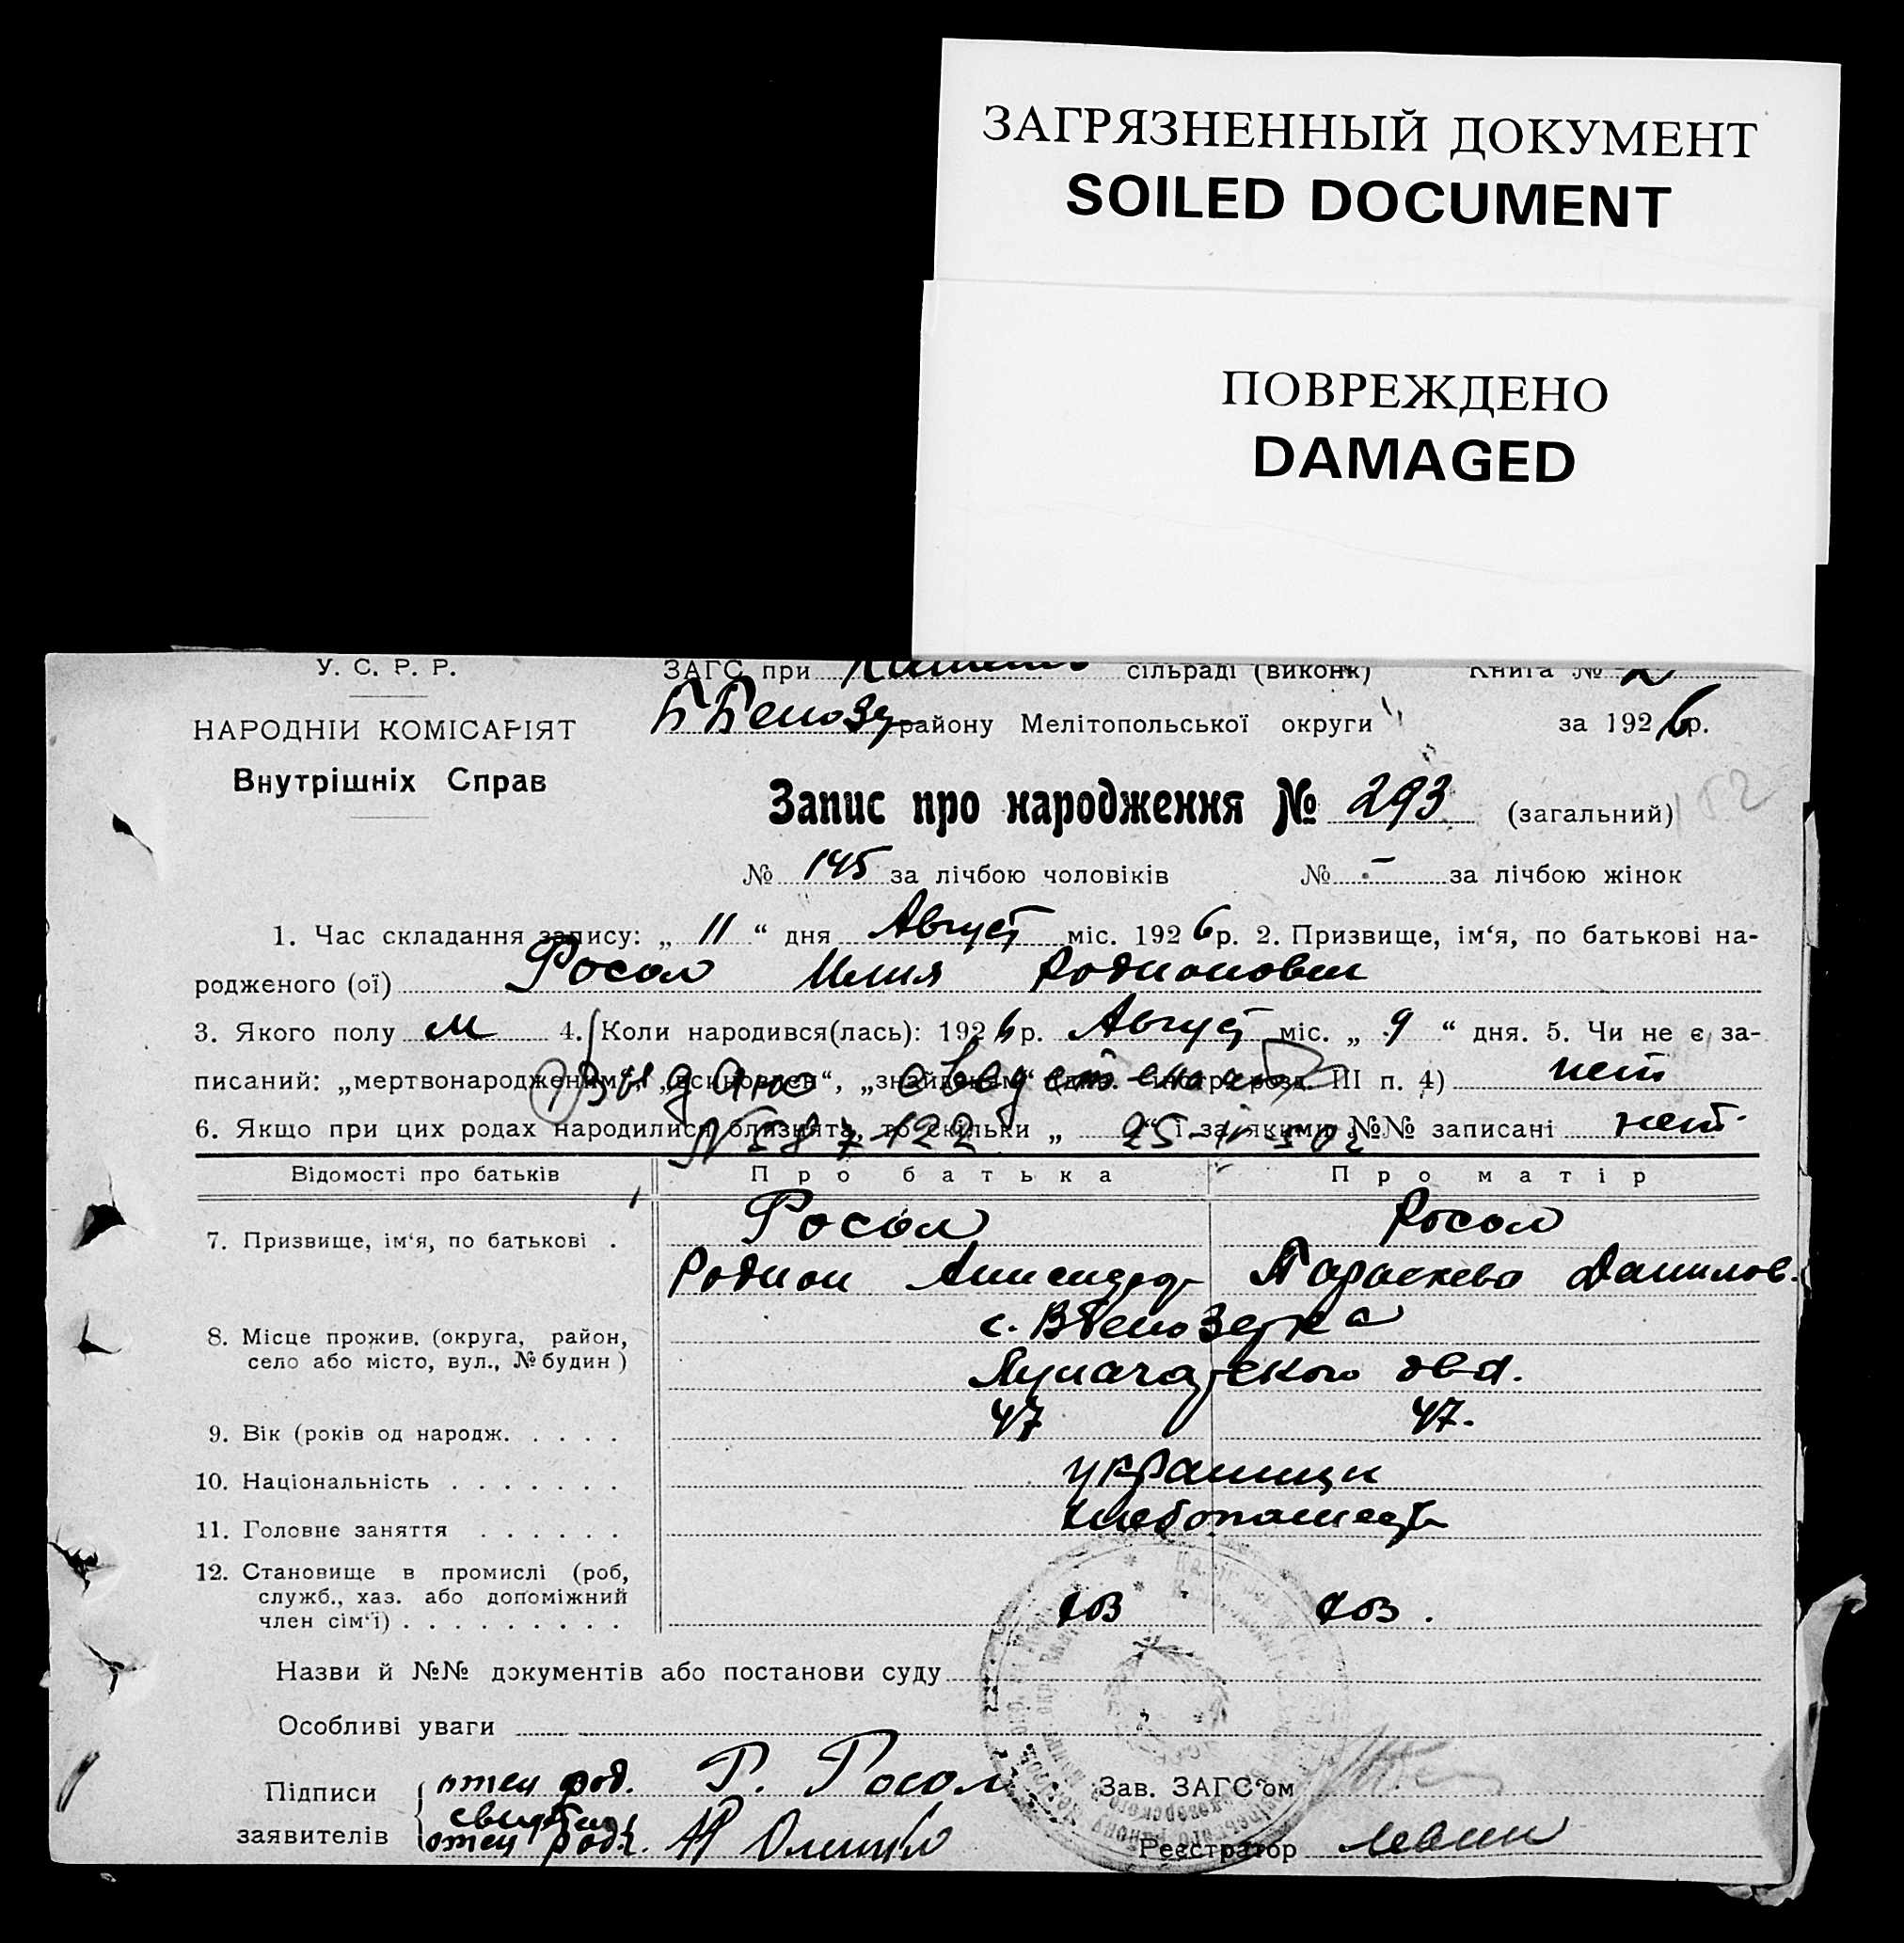 ЗАГРЯЗНЕННЫЙ ДОКУМЕНТ
SOILED DOCUMENT
ПОВРЕЖДЕНО
DAMAGED
У. С. Р. Р.
ЗАГС при сільраді (виконк) Книга №
НАРОДНІЙ КОМІСАРІЯТ
району Мелітопольської округи за 1926р.
Внутрішніх Справ
Запис про народження № 293 (загальний)
№ 145 за лічбою чоловіків № - за лічбою жінок
1. Час складання запису: „ 11 “ дня Август міс. 1926р. 2. Призвище, ім‘я, по батькові на-
родженого (ої) Росол Илия Родионович
3. Якого полу м 4. Коли народився(лась): 1926р. Август міс. „ 9 “ дня. 5. Чи не є за-
писаний: „мертвонародженим“, „знайденим“ III п. 4) нет
6. Якщо при цих родах народилися близнята, то скільки „ “ і за якими №№ записані нет
Відомості про батьків Про батька Про матір
7. Призвище, ім‘я, по батькові . Росол Росол
Родион Параскева Данилов.
8. Місце прожив. (округа, район,
село або місто, вул., № будин )
9. Вік (років од народж. . . . . 47 47.
10. Національність . . . . . . . украинцы
11. Головне заняття . . . . . . хлебопашест
12. Становище в промислі (роб,
служб., хаз. або допоміжний
член сім‘ї) . . . . . . . . . хоз хоз.
Назви й №№ документів або постанови суду
Особливі уваги
Підписи отец род. Р. Росол Зав. ЗАГС‘ом
заявителів отец Реєстратор